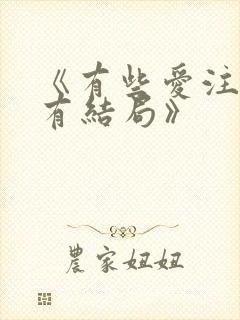 《有些愛注
有結局》
農家妞妞